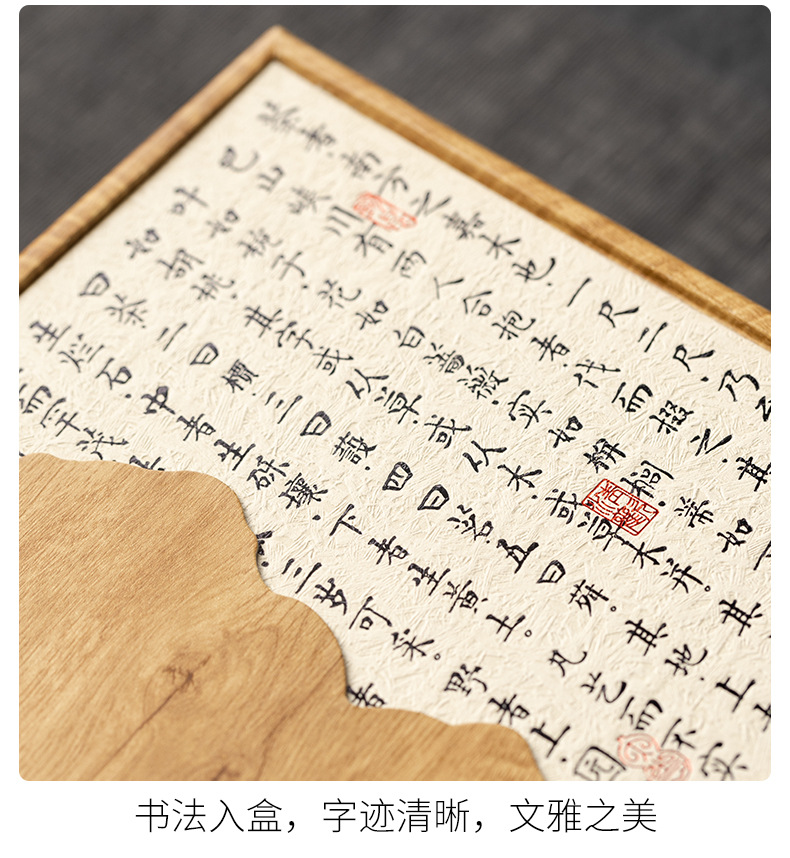 茶者，南方之嘉木也，一尺二尺，乃
巴山峡川有两人合抱者，伐而掇之，其
叶如栀子，花如白蔷薇，实如栟榈，蒂如
如胡桃，其字或从草，或从木，或草木并。其
曰茶，二曰槚，三曰蔎，四曰茗，五曰荈。其地，上者
生烂石，中者生砾壤，下者生黄土。凡艺而不实
而罕茂
三岁可采。野者上，园
者
书法入盒，字迹清晰，文雅之美